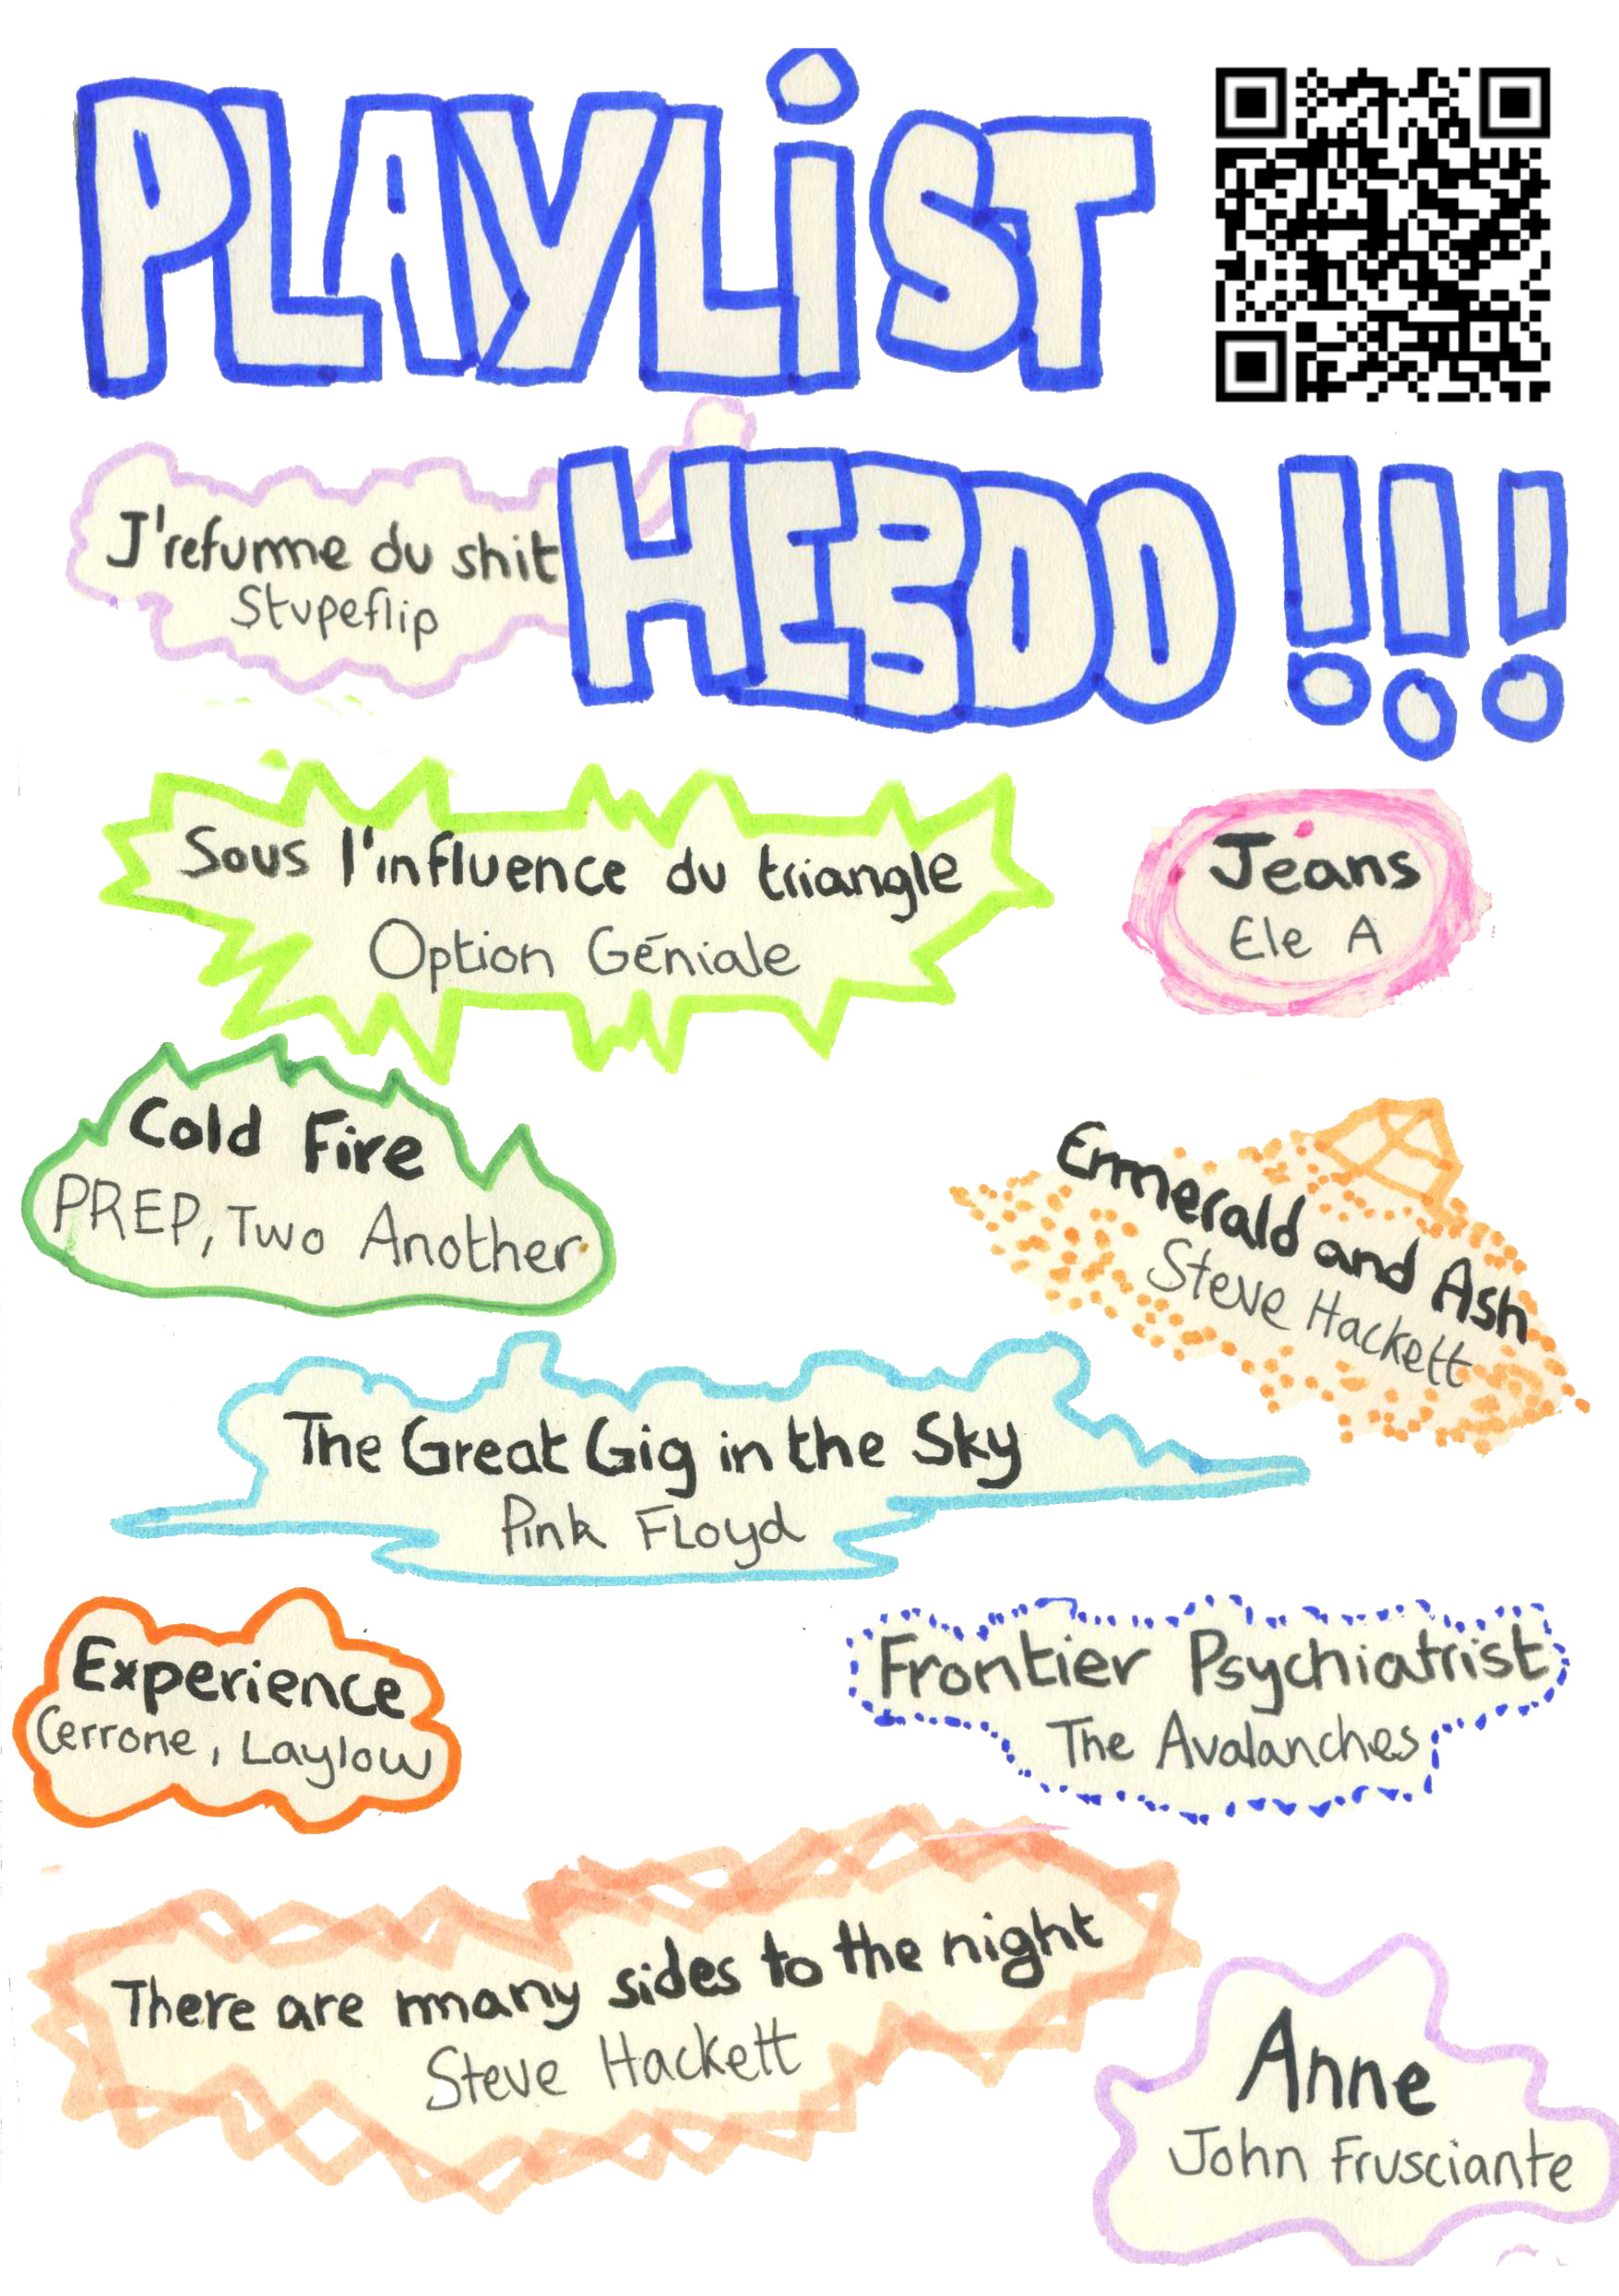 PLAYLiST
HEBDO !!!
J'refume du shit
Stupeflip
Sous l'influence du triangle
Option Géniale
Jeans
Ele A
Cold Fire
PREP, Two Another
Emerald and Ash
Steve Hackett
The Great Gig in the Sky
Pink FLoyd
Experience
Cerrone, Laylow
Frontier Psychiatrist
The Avalanches
There are many sides to the night
Steve Hackett
Anne
John Frusciante